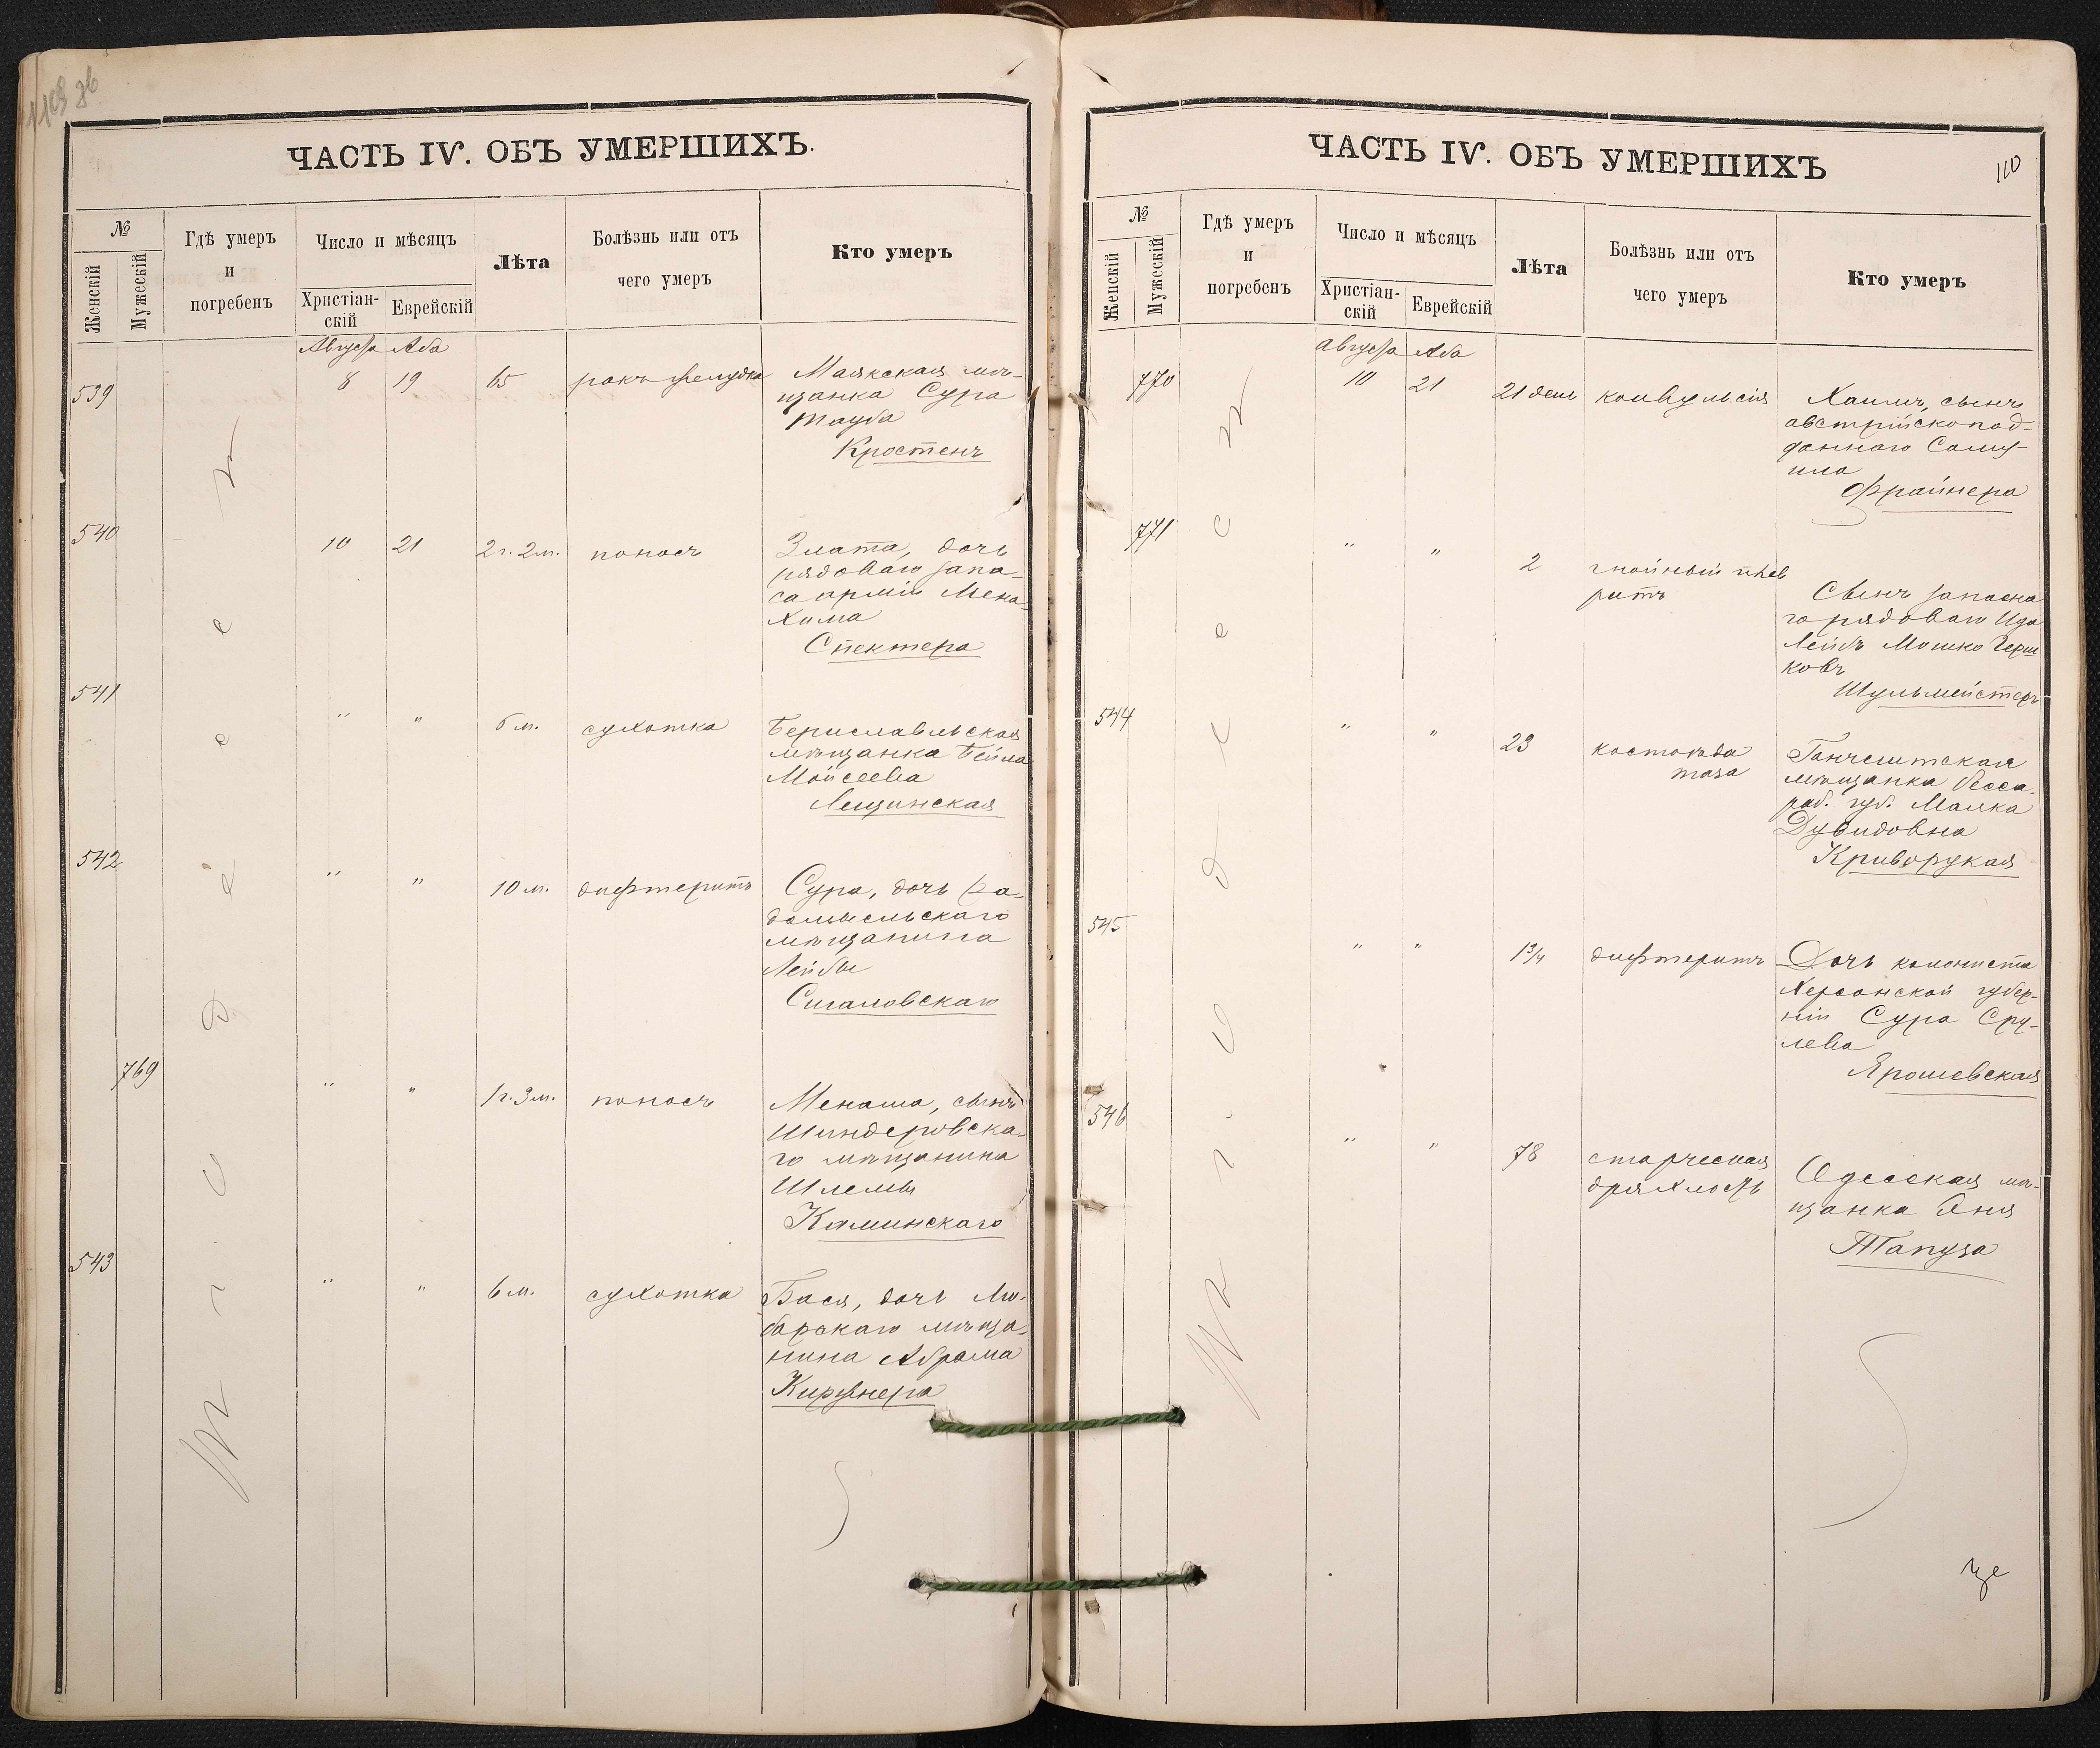 ЧАСТЬ IV. ОБЪ УМЕРШИХЪ.
№
Женскій
Мужескій
Гдѣ умеръ
и
погребенъ
Число и мѣсяцъ
Христіан-
скій
Еврейскій
Лѣта
Болѣзнь или отъ
чего умеръ
Кто умеръ
Августа Аба
539 8 19 65 ракъ желудка Маякская мѣ-
щанка Сура
Тауба
Кростенъ
540 10 21 2 г. 2 м. поносъ Злата, дочь
рядоваго запа-
са арміи Мена-
хима
Спектера
541 " " 5 м. сухотка Бериславльская
мѣщанка Бейла
Мойсеева
Лещинская
542 " " 10 м. дифтеритъ Сура, дочь Ра-
домысльскаго
мѣщанина
Лейбы
Сигаловскаго
769 " " 1 г. 3 м. поносъ Менаша, сынъ
Шиндеровска-
го мѣщанина
Шлемы
Каминскаго
543 " " 6 м. сухотка Бася, дочь Лю-
барскаго мѣща-
нина Абрама
Киржнера
въ г. Одессѣ
ЧАСТЬ IV. ОБЪ УМЕРШИХЪ
110
№
Женскій
Мужескій
Гдѣ умеръ
и
погребенъ
Число и мѣсяцъ
Христіан-
скій
Еврейскій
Лѣта
Болѣзнь или отъ
чего умеръ
Кто умеръ
Августа Аба
770 10 21 21 день конвульсія Хаимъ, сынъ
австрійскопод-
даннаго Саму-
ила
Фрайнера
771 " " 2 гнойный плев
ритъ
Сынъ запасна
го рядоваго Ида
Лейбъ Мошко Герш
ковъ
Шульмейстеръ
544 " " 23 костоѣда
таза
Ганчештская
мѣщанка Бесса-
раб. губ. Малка
Дувидовна
Криворукая
545 " " 1 3/4 дифтеритъ Дочь колониста
Херсонской губер-
ніи Сура Сру-
лева
Ярошевская
546 " " 78 старческая
дряхлость
Одесская мѣ-
щанка Эня
Тапуза